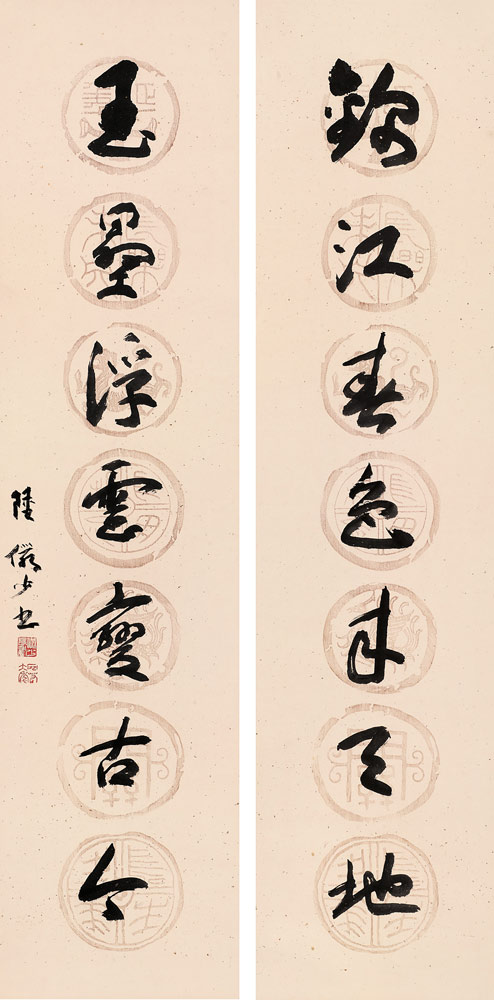 錦江春色来天地
玉壘浮雲變古今
陸儼少书